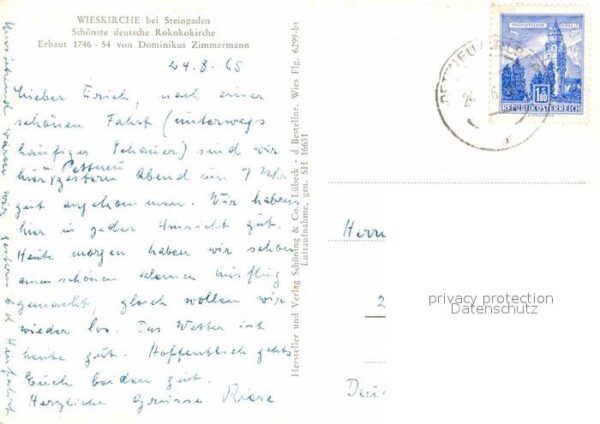 WIESKIRCHE bei Steingaden
Schönste deutsche Rokokokirche
Erbaut 1746 - 54 von Dominikus Zimmermann
24.8.65
Lieber Erich, nach einer
schönen Fahrt (unterwegs
häufiger Schauer) sind wir
in Pettneu
hier gestern Abend um 7 Uhr
gut angekommen. Wir haben
hier in jeder Hinsicht gut.
Heute morgen haben wir schon
einen schönen kleinen Ausflug
gemacht, gleich wollen wir
wieder los. Das Wetter ist
heute gut. Hoffentlich gehts
Euch beiden gut.
Herzliche Grüsse
wir gestern a. d. Hinfahrt
Hersteller und Verlag Schöning & Co., Lübeck · d Bestellnr. Wies Flg. 6299-bt
Luftaufnahme, gen. SH 16631
MÜNZTURM
1.80
REPUBLIK ÖSTERREICH
Herrn
privacy protection
Datenschutz